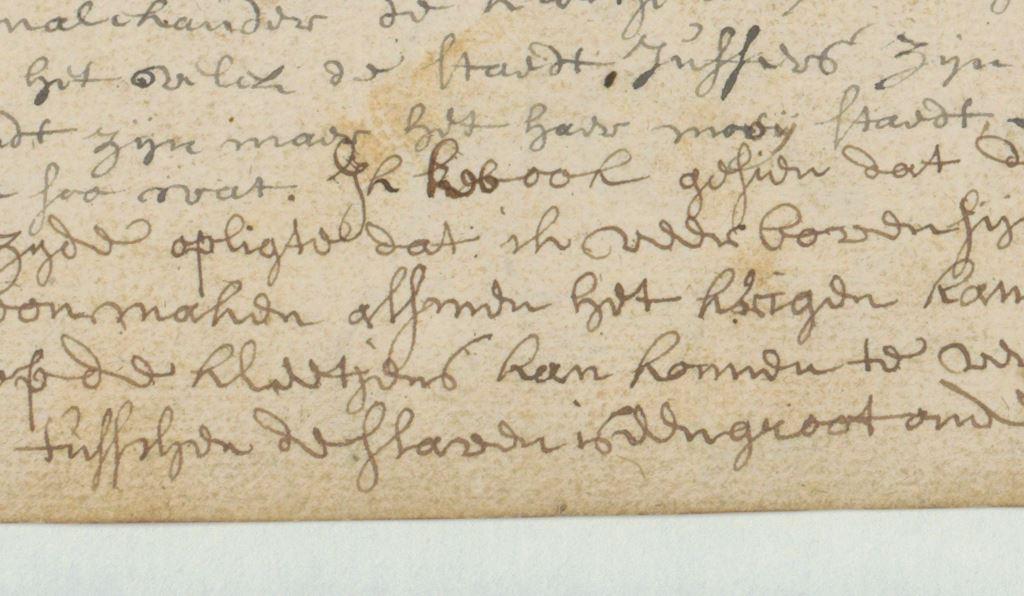 malckander de
het welck de staedt Juffers zijn
dt zijn maer het haer mooy staedt
soo wat. Ik heb ook gesien dat d
zyde opligte dat ik weer boven sij
oon maken alsmen het krigen kan
op de kleetjens kan konnen te ver
tusschen de slaven is een groot onde